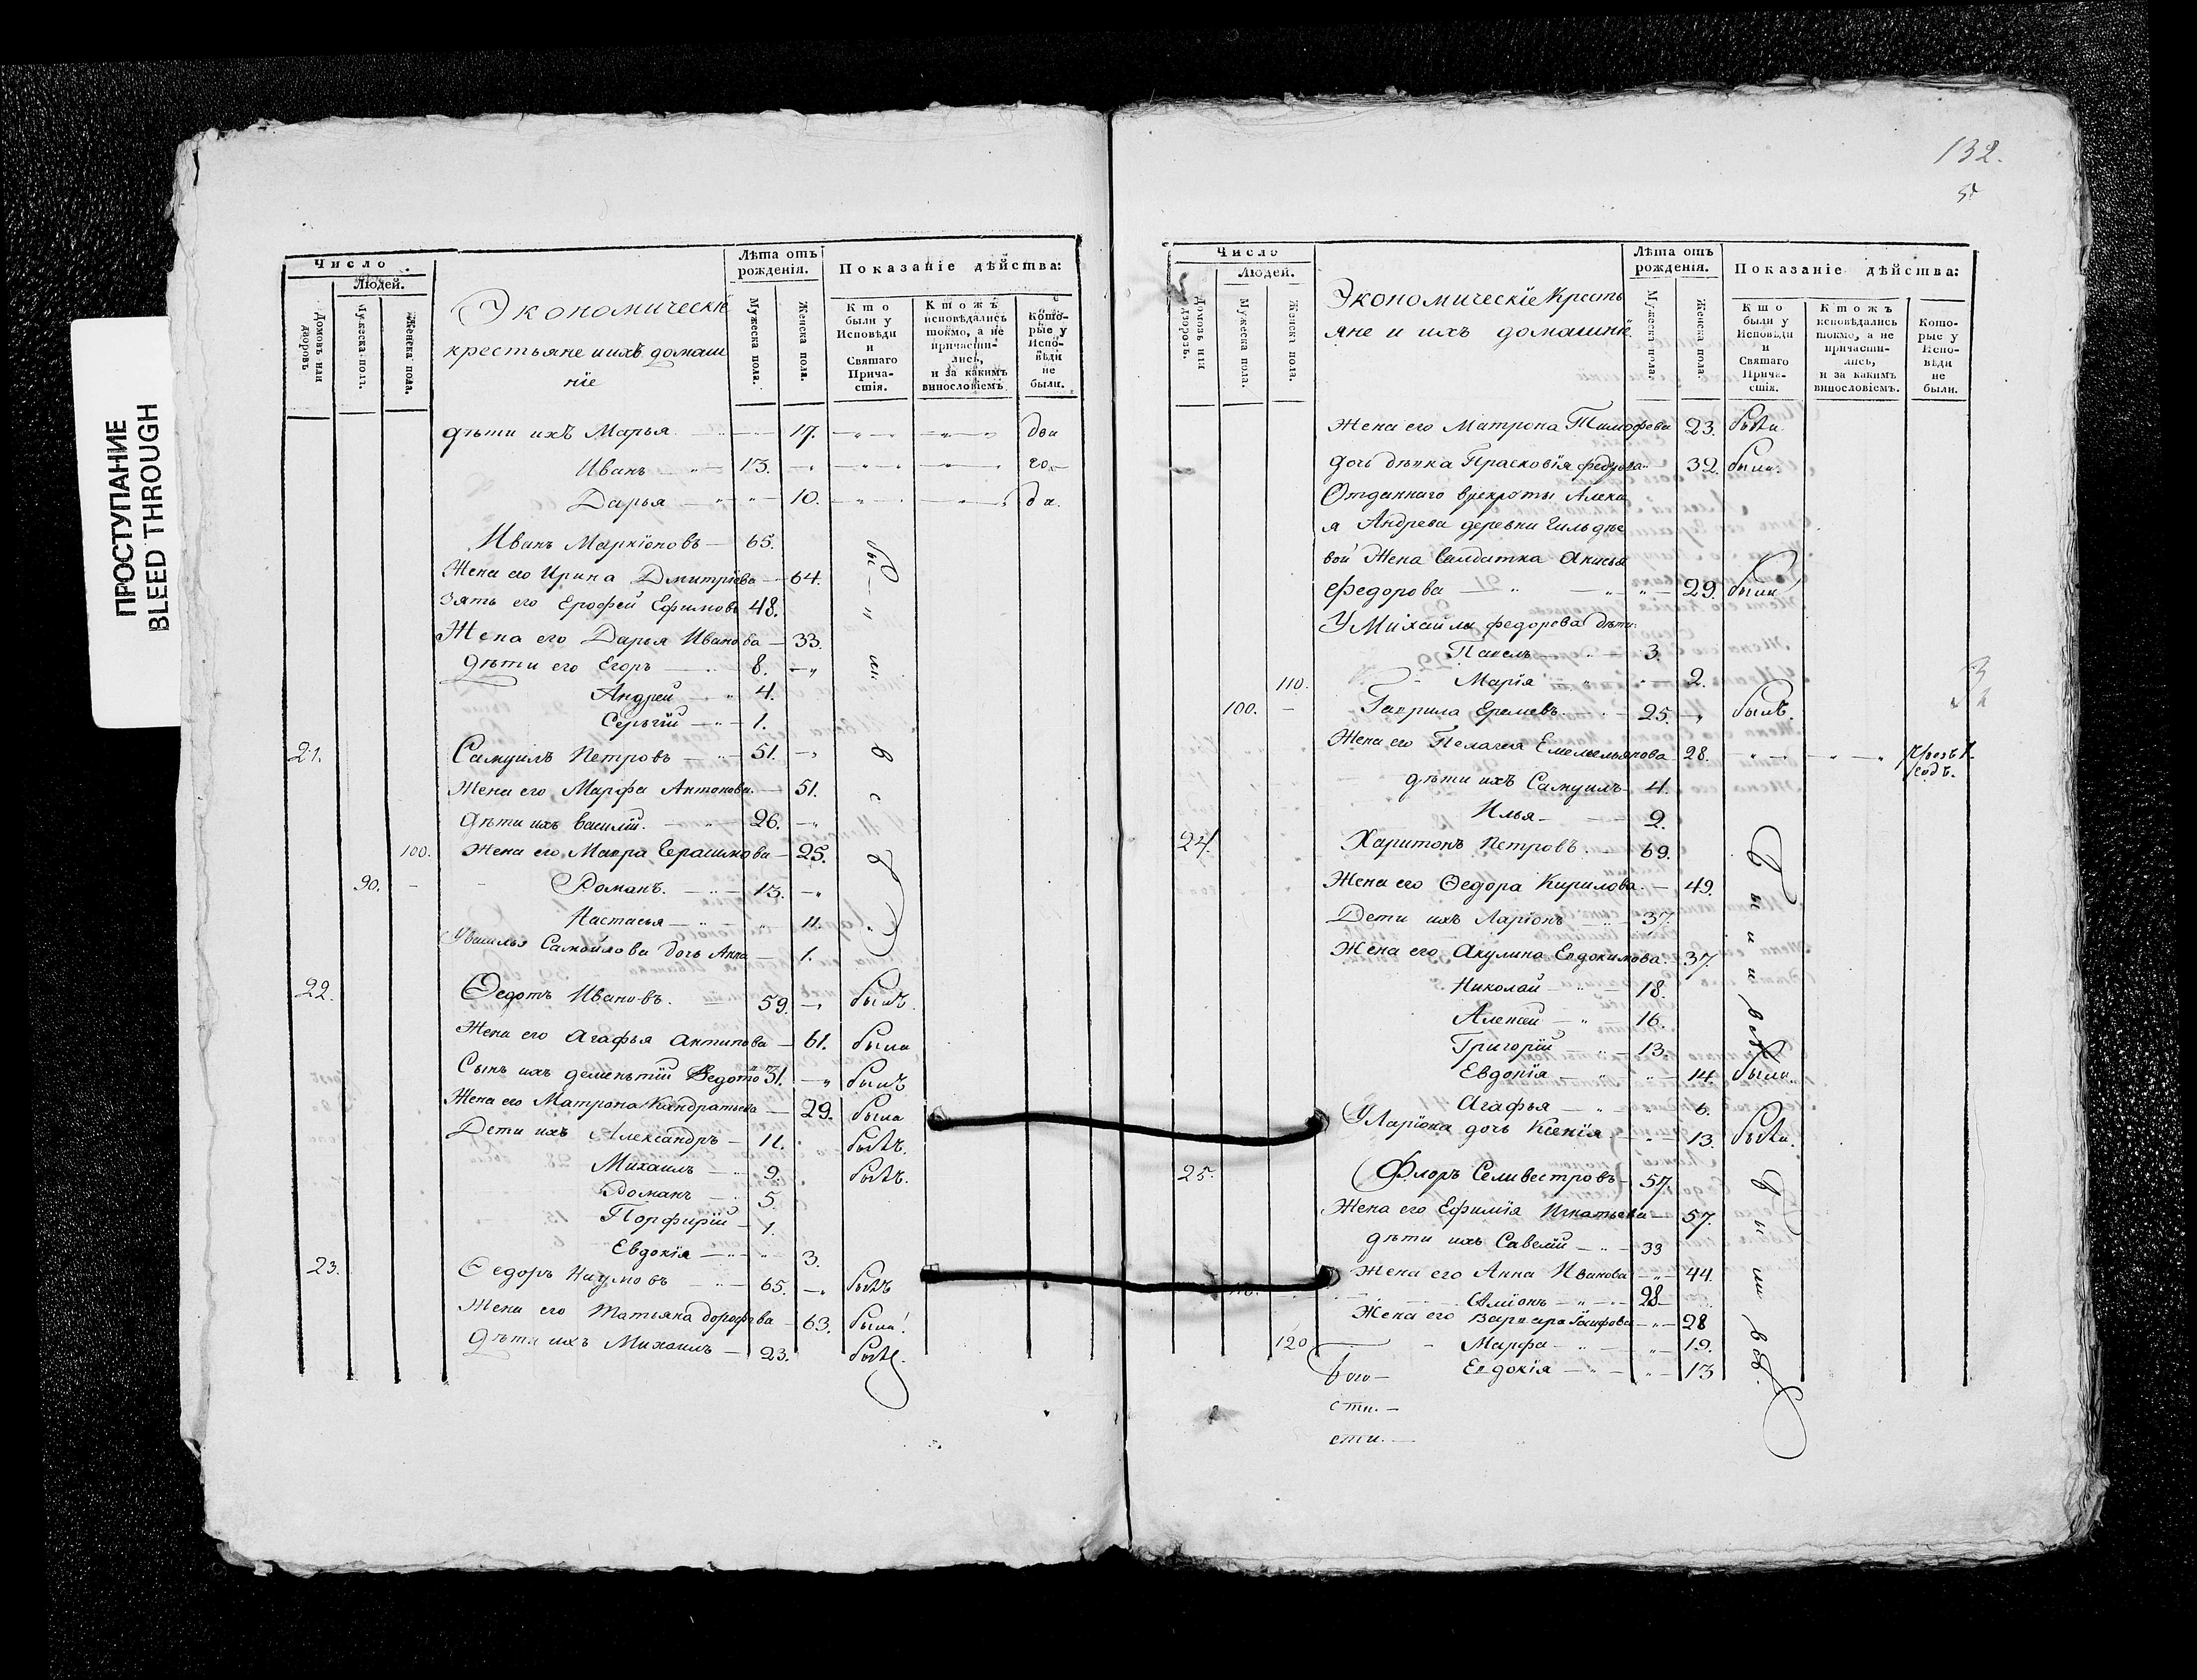 ПРОСТУПАНИЕ
BLEED THROUGH
Число
Людей.
Домовъ или дворовъ
Мужеска пола.
Женска пола.
Экономическіе
крестьяне и ихъ домаш
ніе
Лѣта отъ рожденія.
Мужеска пола.
Женска пола.
Показаніе дѣйства:
Кто были у Исповѣди и Святаго Причастія.
Ктожъ исповѣдались токмо, а не причастились, и за какимъ винословіемъ.
Которые у Исповѣди не были.
дѣти ихъ Марья 17.
Иванъ 13.
Дарья 10.
Иванъ Маркіоновъ 65.
Жена его Ирина Дмитріева 64.
Зять его Ерофей Ефимовъ 48.
Жена его Дарья Иванова 33.
дѣти его Егоръ 8.
Андрей 4.
Сергѣй 1.
21. Самуилъ Петровъ 51.
Жена его Марфа Антонова 51.
дѣти ихъ Василій 26.
100. Жена его Мавра 25.
90. Романъ 13.
Настасья 11.
Увасилья Самойлова дочь Анна 1.
22. Ѳедотъ Ивановъ. 59. былъ.
Жена его Агафья Антипова 61. была
Сынъ ихъ 31. былъ
Жена его Матрона Кандратьева 29. была
Дети ихъ Александръ 11. былъ.
Михаилъ 9. былъ.
Романъ 5.
Порфирій 1.
Евдокія 3.
23. Ѳедоръ Наумовъ 65. былъ
Жена его Татьяна 63. была
дѣти ихъ Михаилъ 23. былъ.
132.
5
Число
Людей.
Домовъ или дворовъ.
Мужеска пола.
Женска пола.
Экономическіе Кресть
яне и ихъ домашніе
Лѣта отъ рожденія.
Мужеска пола.
Женска пола.
Показаніе дѣйства:
Кто были у Исповѣди и Святаго Причастія.
Ктожъ исповѣдались токмо, а не причастились, и за какимъ винословіемъ.
Которые у Исповѣди не были.
Жена его Матрона Тимофева 23. была
дочь дѣвка Прасковія 32. была.
Отданнаго врекруты
я Андрева деревни
вой Жена Салдатка
Федорова 29. была
У Михайла федорова дѣти
Павелъ 3.
110. Марія 2.
100. Гаврила 25. былъ.
Жена его Пелагея Емельельянова 28.
дѣти ихъ Самуилъ 4.
Илья 2.
24. Харитонъ Петровъ. 69.
Жена его Ѳедора Кирилова 49.
Дети ихъ Ларіонъ 37.
Жена его Акулина Евдокимова. 37.
Николай 18.
Алексей 16.
Григорій 13.
Евдокія 14. была.
Агафья 6.
У Ларіона дочь Ксенія 13. была.
25. Флоръ Селивестровъ 57.
Жена его Ефимія Игнатьева 57.
дѣти ихъ Савелій 33
Жена его Анна Иванова 44.
28
Жена его Варвара 28
120 Марфа 19.
Евдокія 13
сти.
сти.